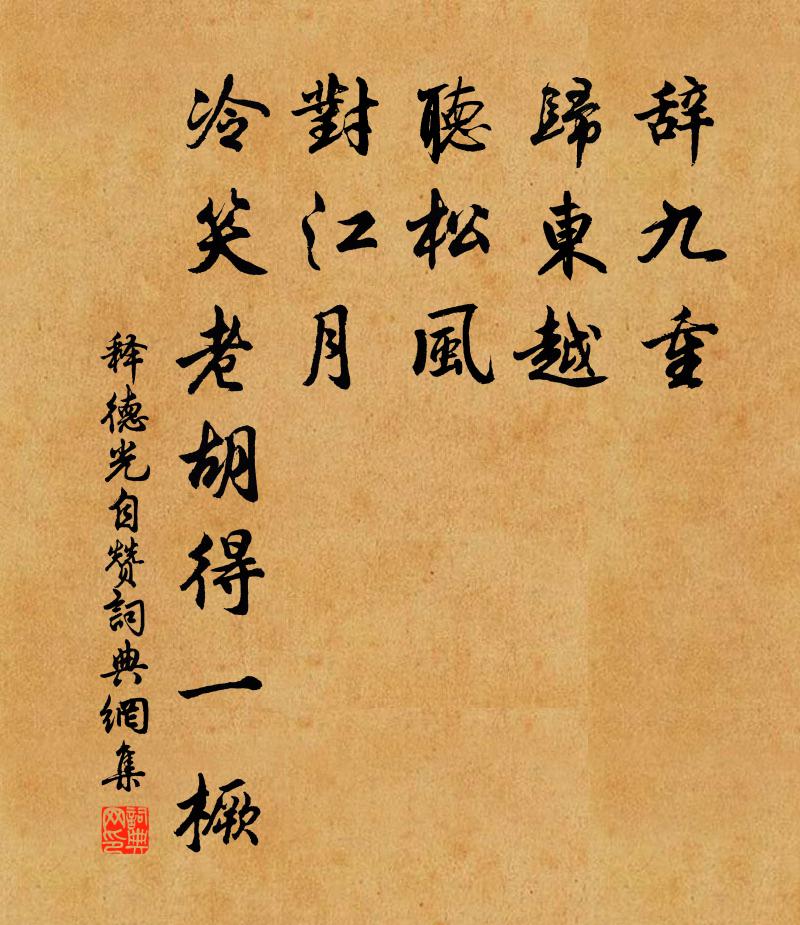 辞九重
歸東越
聽松風
對江月
冷笑老胡得一橛
释德光自赞詞典網集
詞典网印